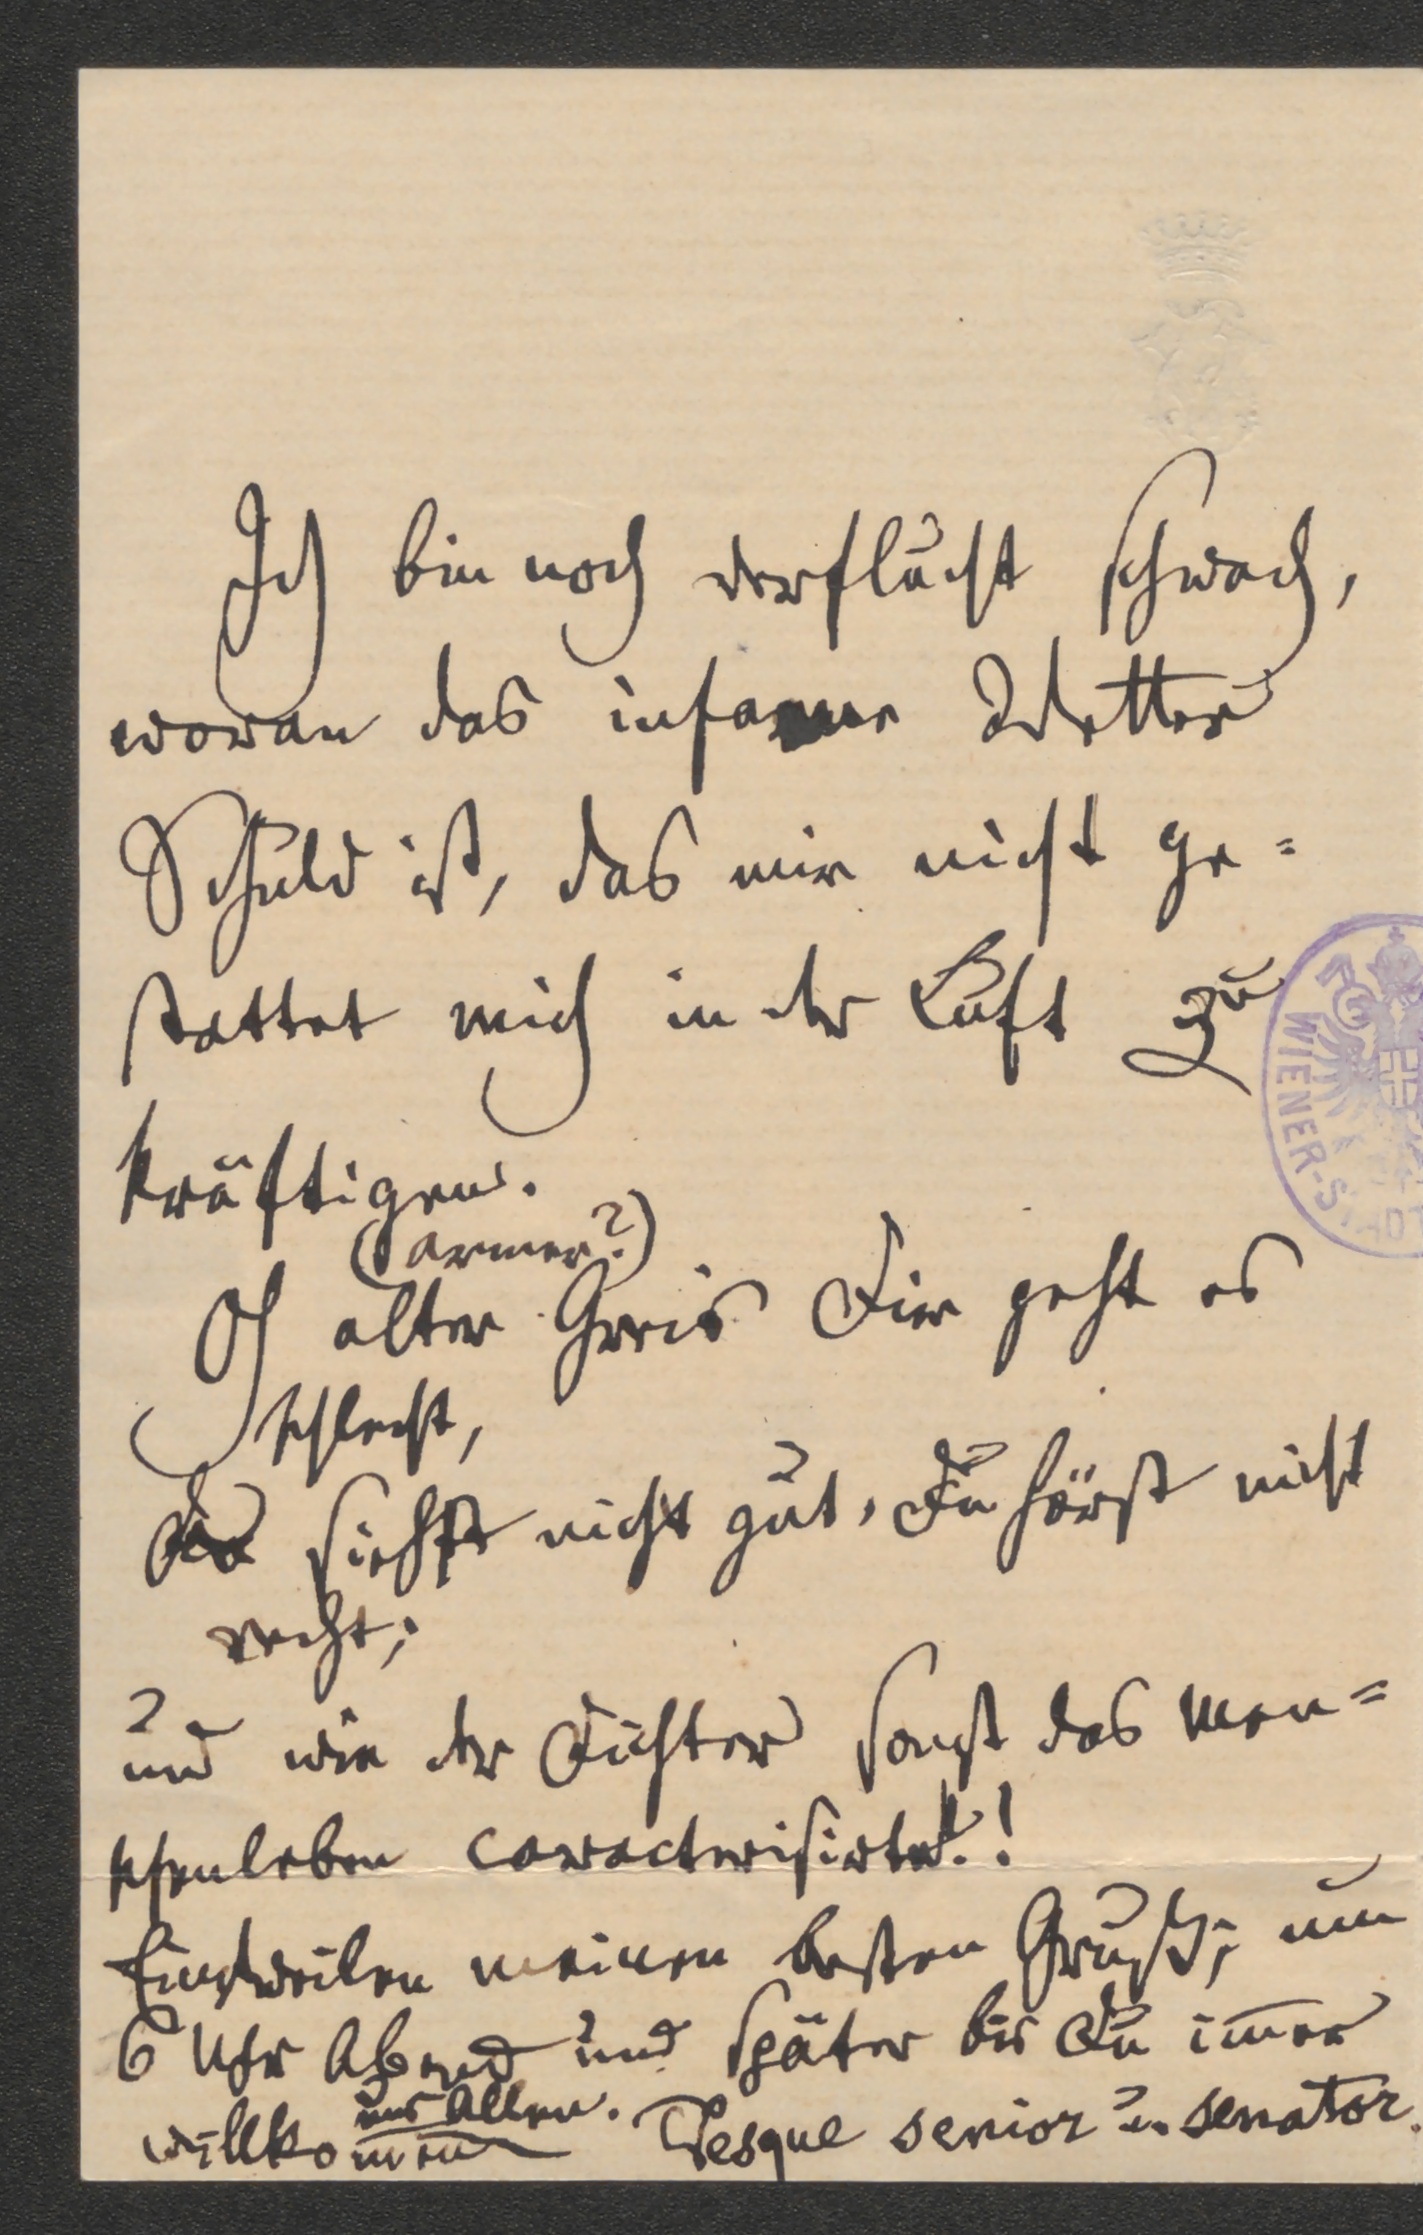 Ich bin noch verflucht schwach,
woran das infame Wetter
Schuld ist, das mir nicht ge=
stattet mich in der Luft zu
kräftigen.
(armer?)
Oh alter Greis Dir geht es
schlecht,
Du siehst nicht gut, Du hörst nicht
recht;
und wie der Dichter sonst das Men=
schenleben caracterisirte!!
Einstweilen meinen besten Gruß; um
6 Uhr Abend und später bis Du immer
uns Allen.
willkommen Vesque senior u. senator.
WIENER-STADT